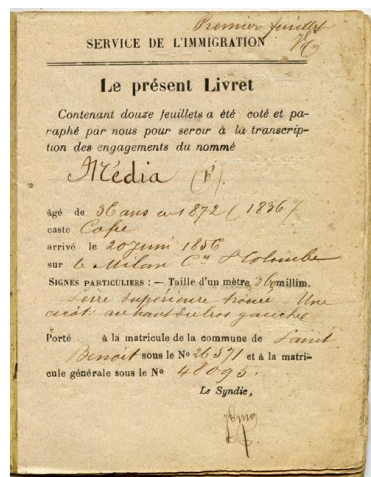 Premier feuillet
SERVICE DE L'IMMIGRATION
Le présent Livret
Contenant douze feuillets a été coté et pa-
raphé par nous pour servir à la transcrip-
tion des engagements du nommé
Média (F)
âgé de 36 ans en 1872 (1836)
caste Cafre
arrivé le 20 juin 1856
sur le Milan Cne Ste Colombe
SIGNES PARTICULIERS : — Taille d'un mètre 360 millim.
Lèvre supérieure trouée Une
cicat: au haut du bras gauche
Porté à la matricule de la commune de Saint
Benoit sous le No 26571 et à la matri-
cule générale sous le No 48095.
Le Syndic,